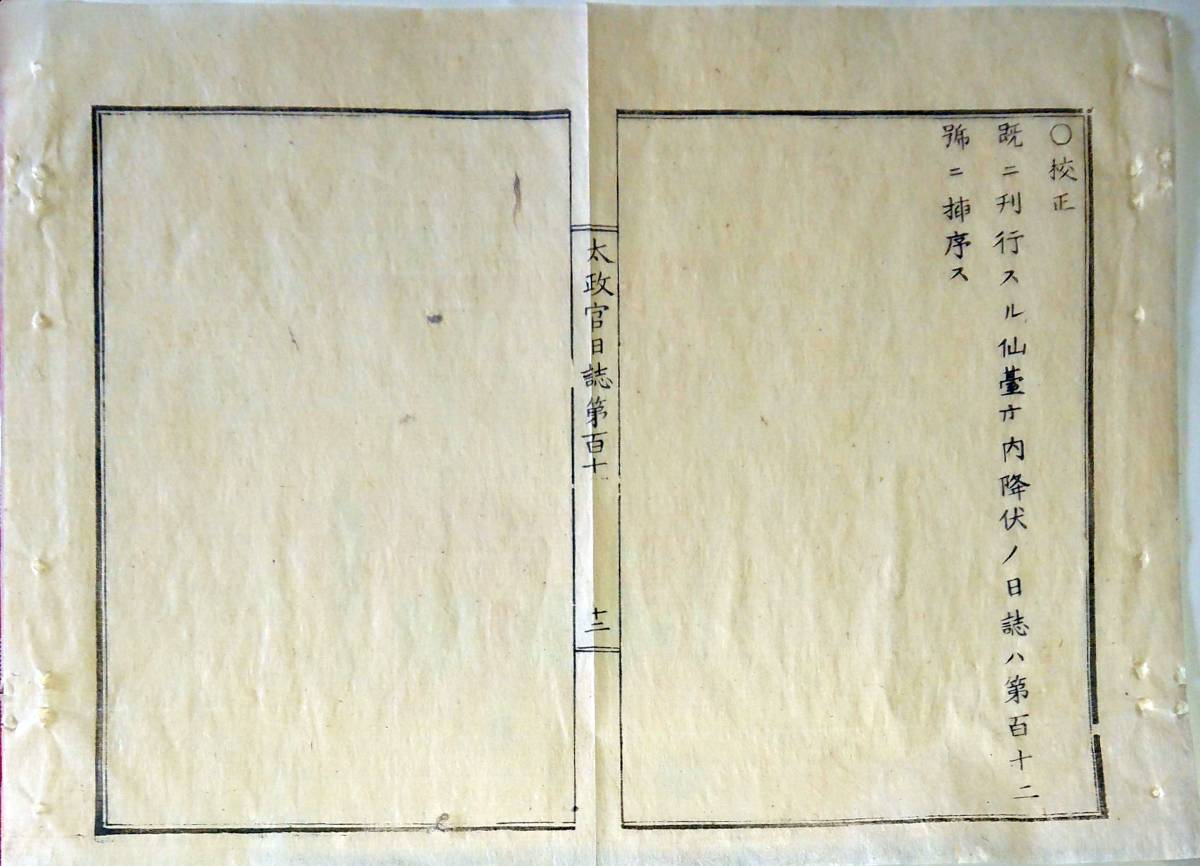 〇挍正
既ニ刊行スル仙䑓才内降伏ノ日誌ハ第百十二
號ニ挿序ス
太政官日誌第百十
十二